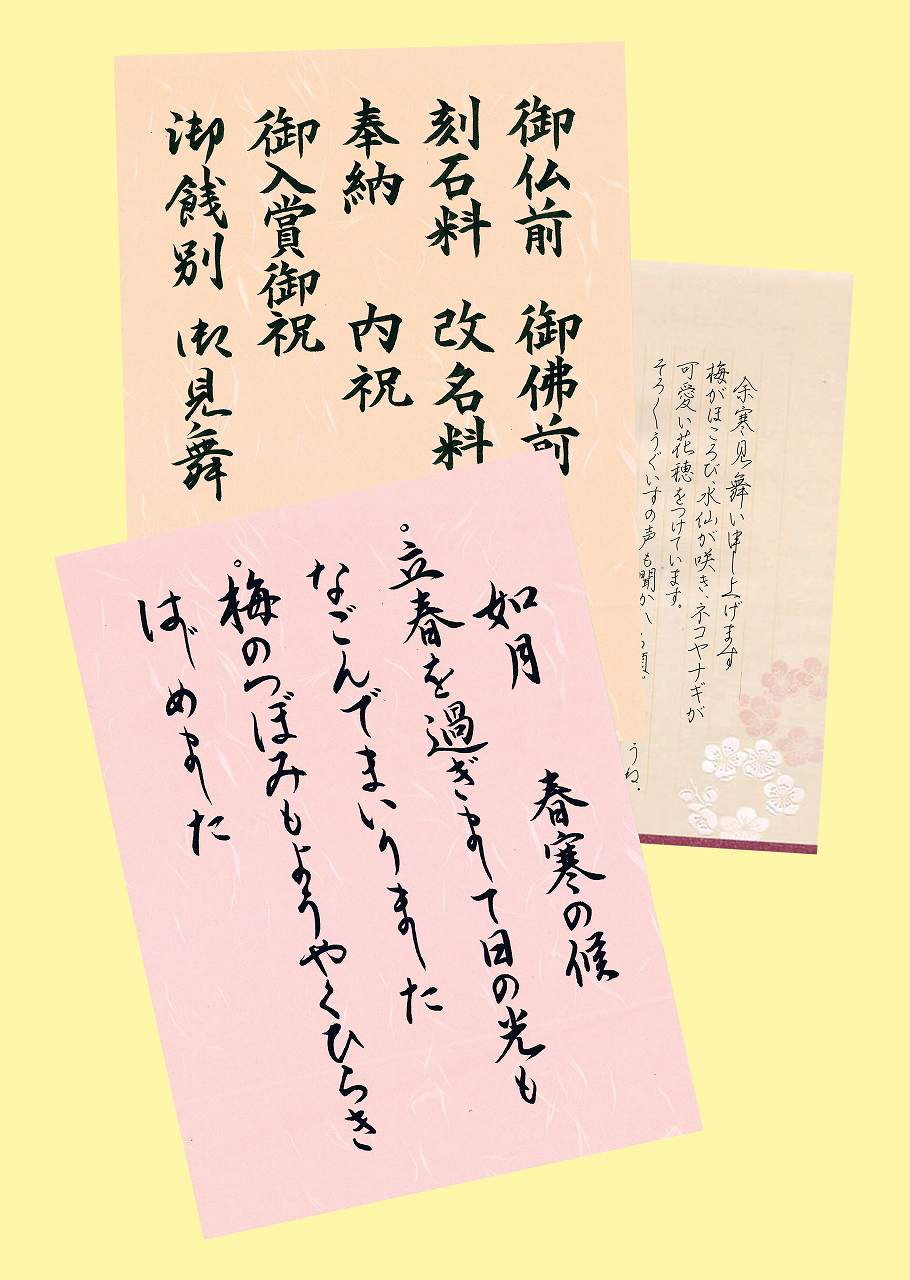 御仏前　御佛前
刻石料　改名料
奉納　内祝
御入賞御祝
御餞別　御見舞
余寒見舞い申し上げます
梅がほころび、水仙が咲き、ネコヤナギが
可愛い花穂をつけています。
そろ〳〵うぐいすの声も聞か
うね。
如月　春寒の候
。立春を過ぎまして日の光も
なごんでまいりました
。梅のつぼみもようやくひらき
はじめました